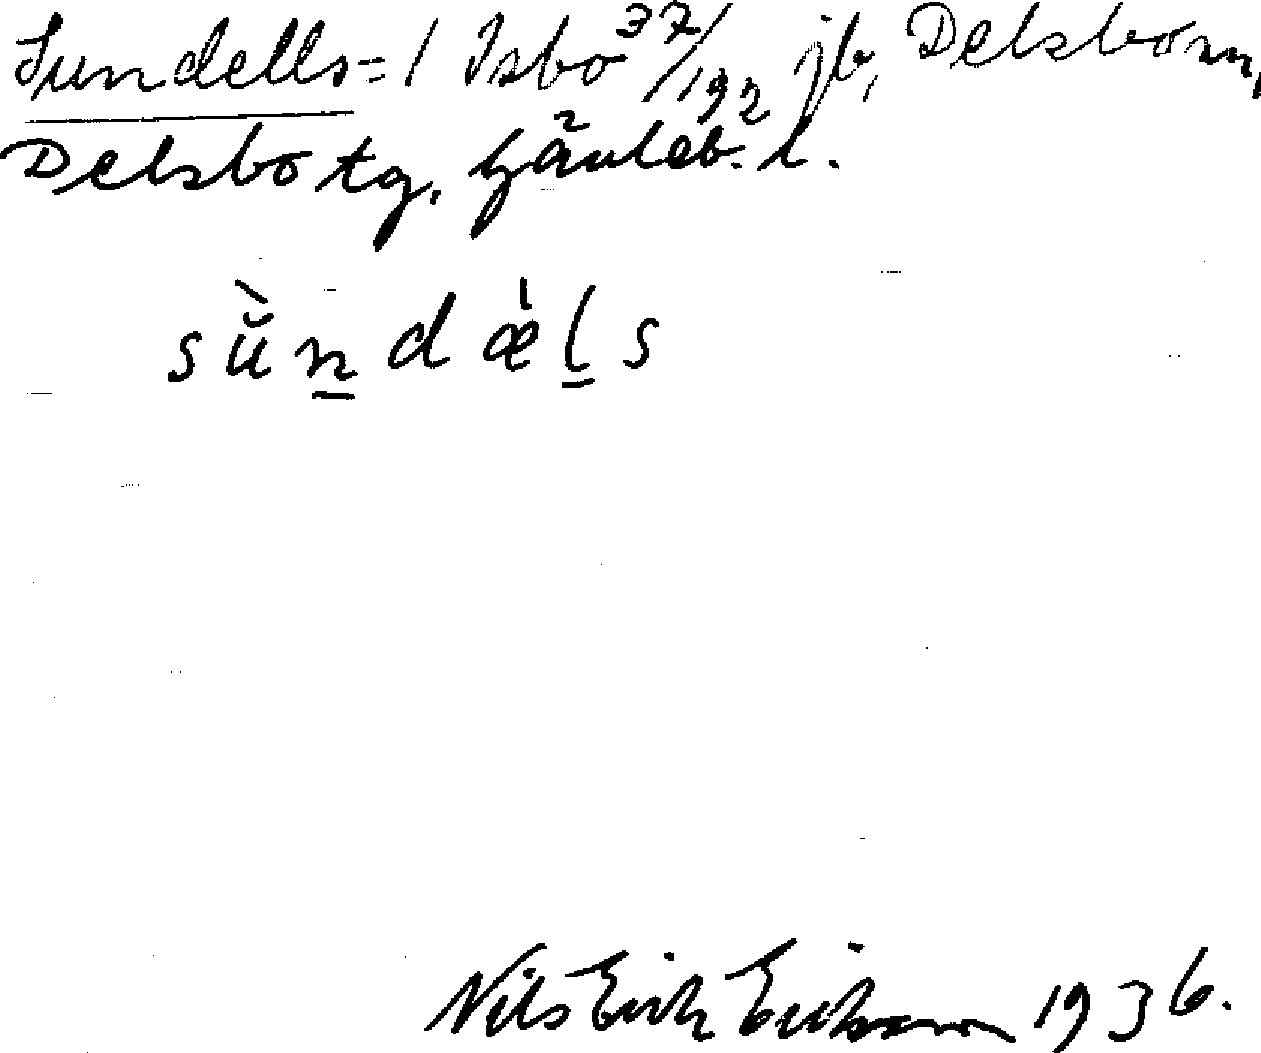 Sundells = 1 Isbo 37/192 jb, Delsbo sn,
Delsbo tg. Gävleb. l.
sùndæ̀ls
Nils Erik Eriksson 1936.